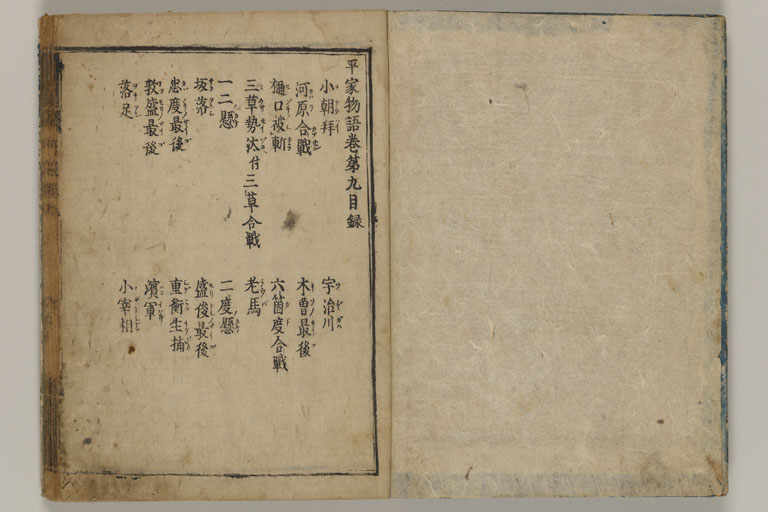 平家物語巻第九目録
小朝拝　宇治川
河原合戰　木曽最後
樋口被斬　六箇度合戰
三草勢汰付三草合戰　老馬
一二懸　二度懸
坂落　盛俊最後
忠度最後　重衡生捕
敦盛最後　濱軍
落足　小宰相